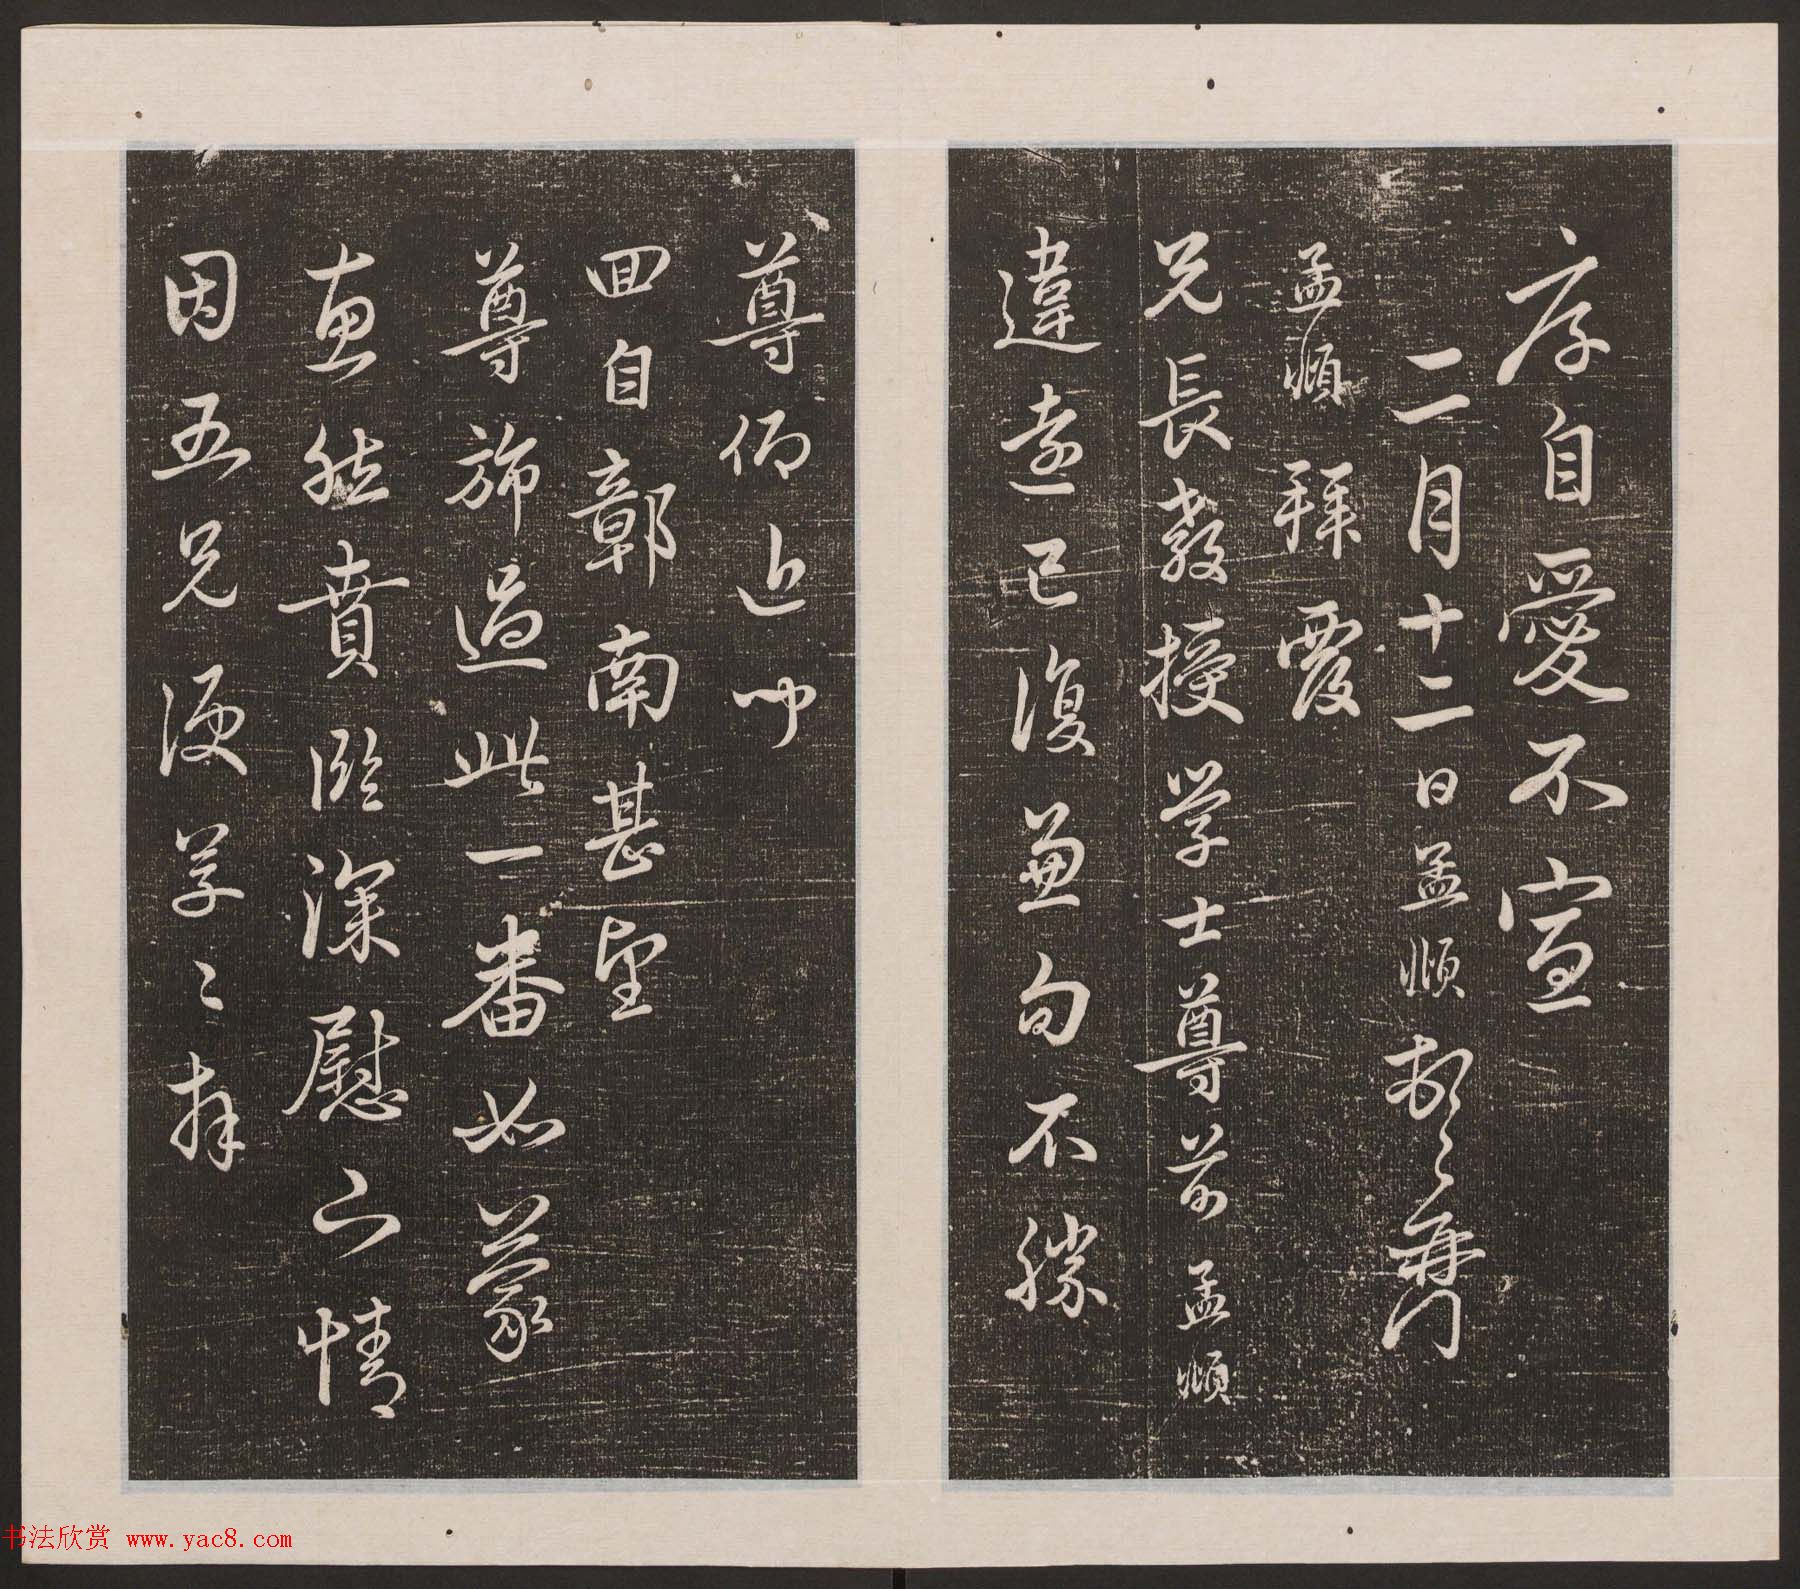 序自愛不宣
二月十二日孟頫頓
孟頫拜覆
兄長教授學士尊前孟頫
違遠已復兼旬不勝
尊仰近聞
回自鄣南甚望
尊旆過此一番如蒙
惠然賁臨深慰下情
因五兄便草草拜
书法欣赏 www.yac8.com